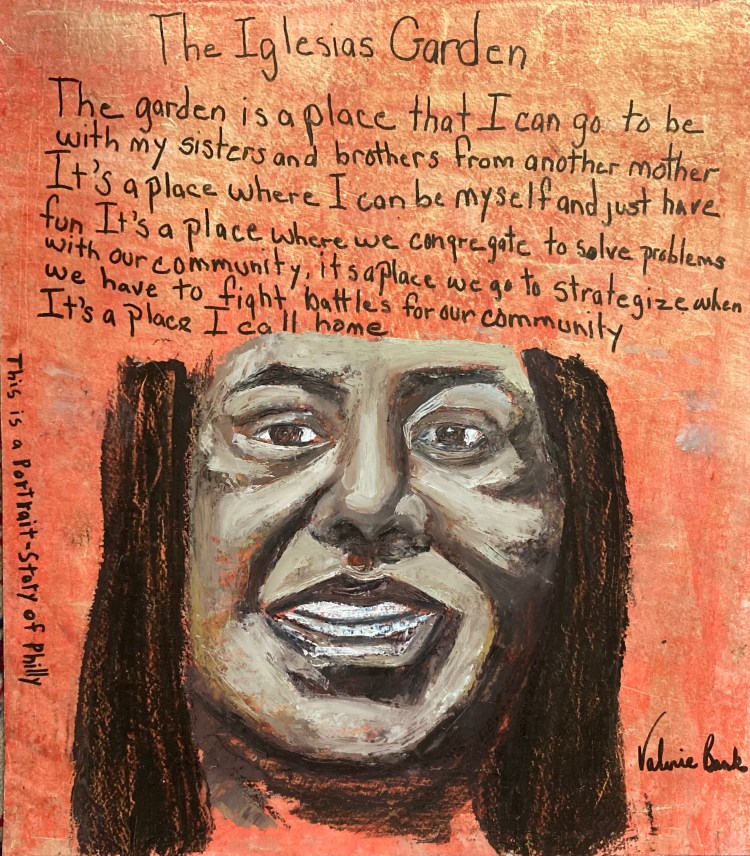 The Iglesias Garden
The garden is a place that I can go to be
with my sisters and brothers from another mother
It's a place where I can be myself and just have
fun It's a place where we congregate to solve problems
with our community, it's a place we go to strategize when
we have to fight battles for our community
It's a place I call home
This is a Portrait-Story of Philly
Valerie